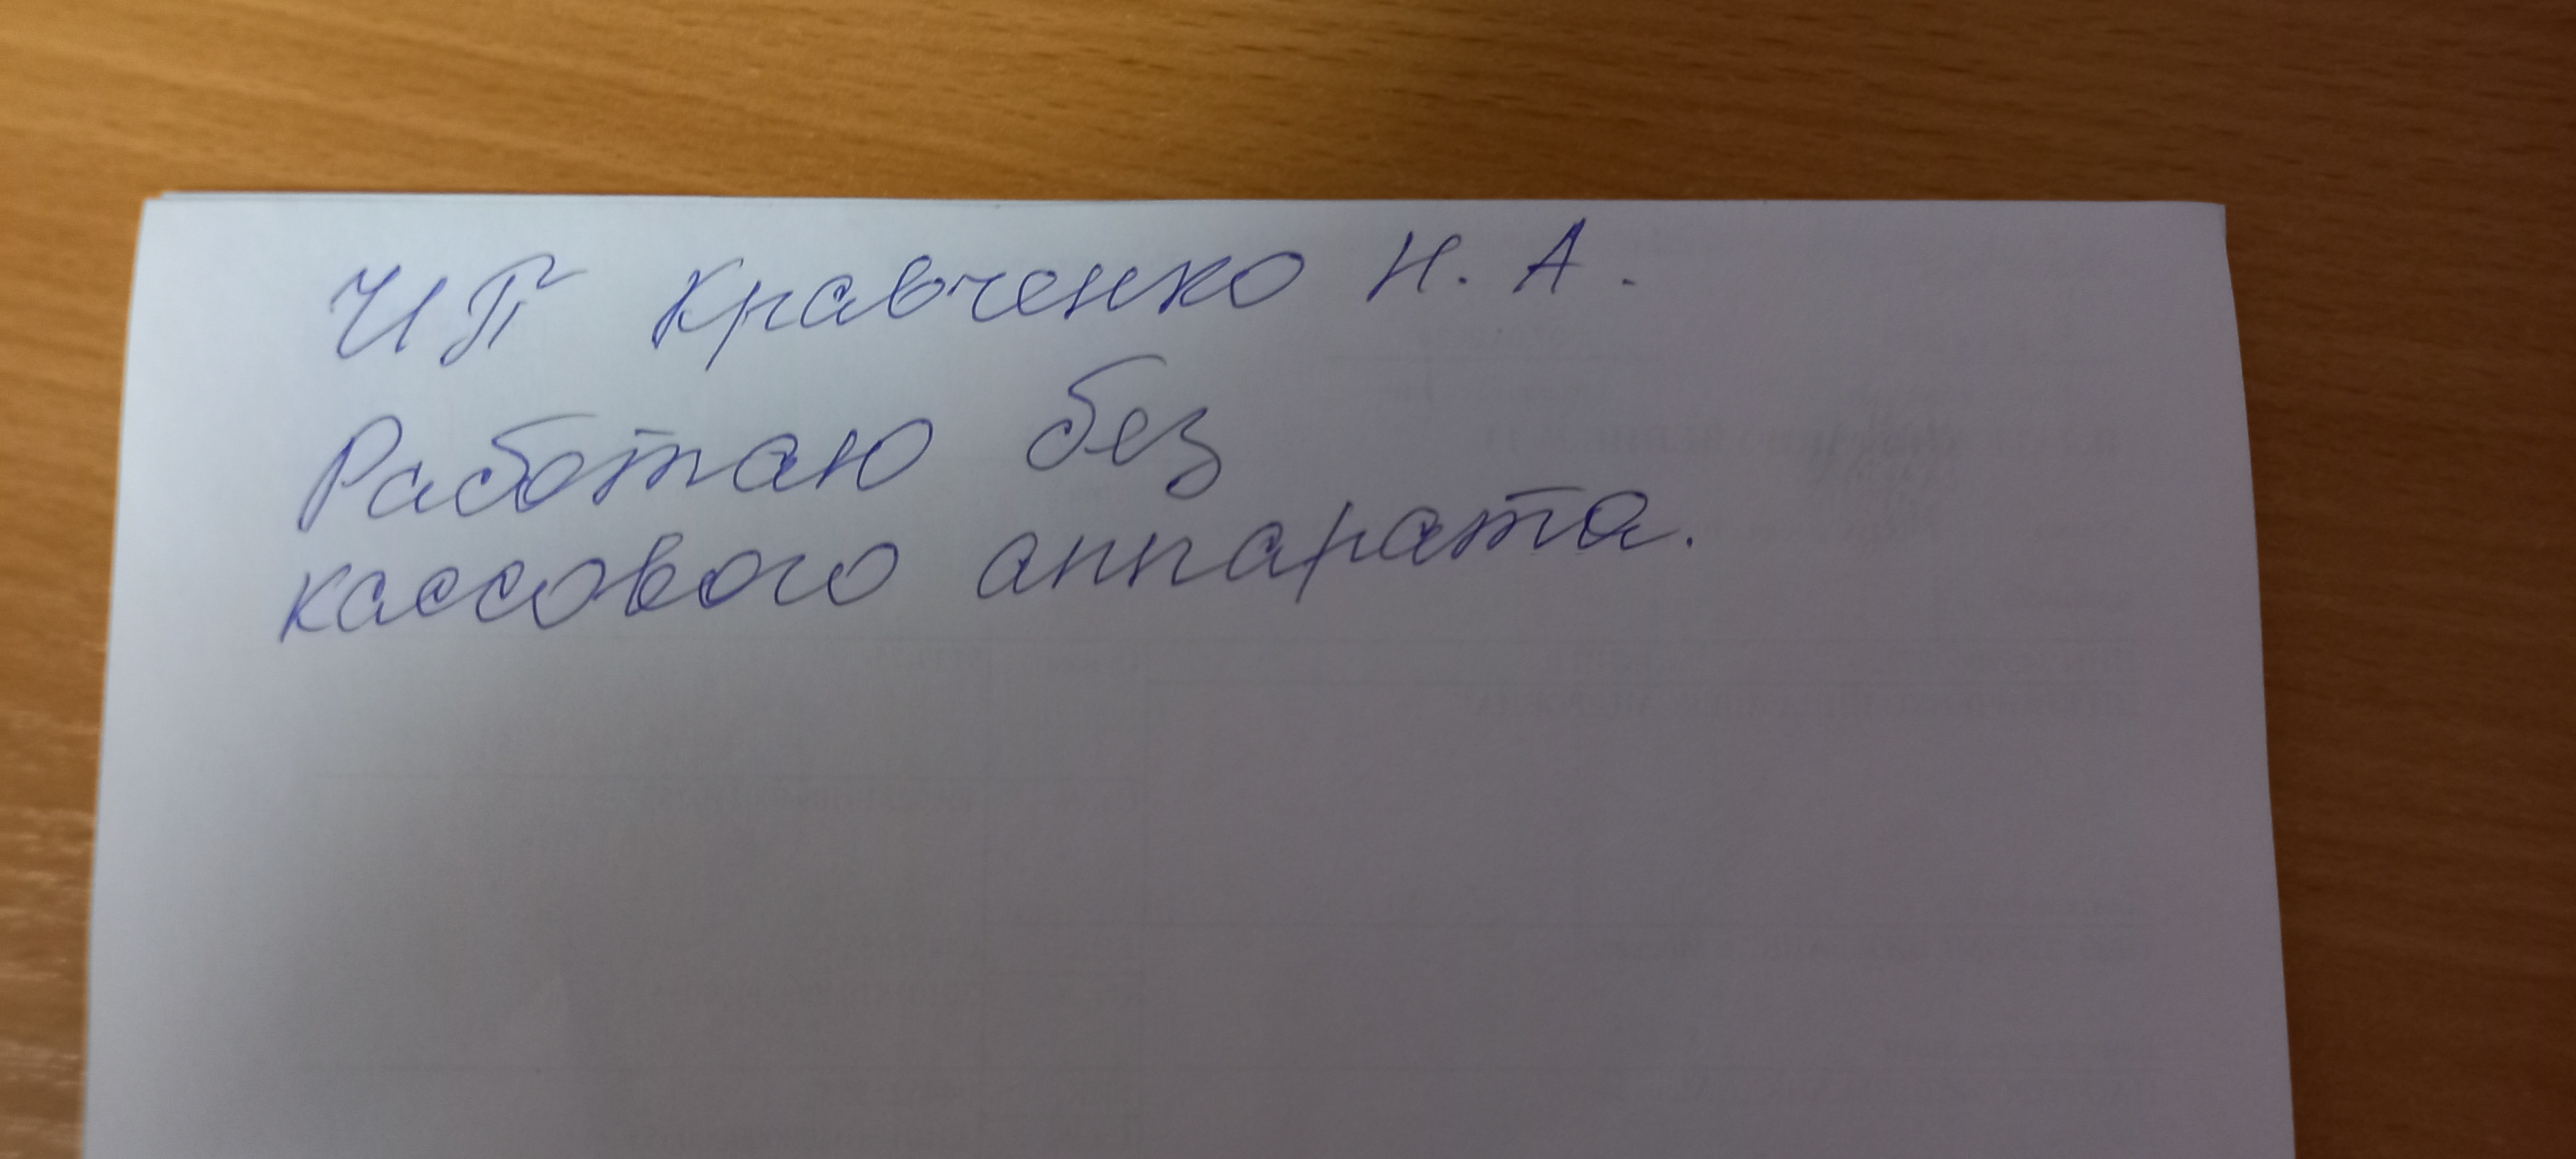 ЧП Кравченко Н. А.
Работаю без
кассового аппарата.